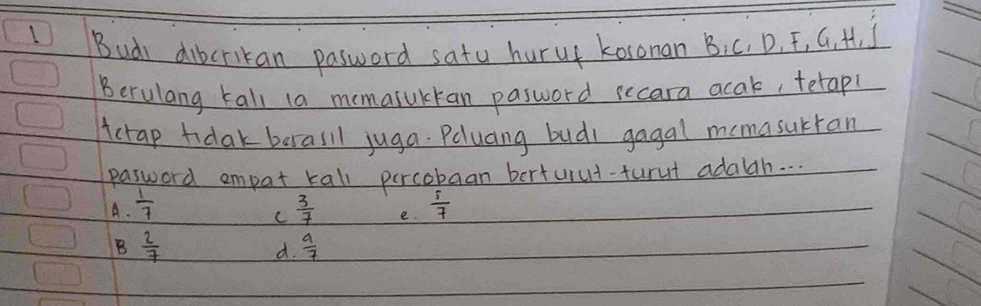 1 Budi diberikan pasword satu huruf kosonan B, C, D, F, G, H, J
Berulang kali ia memasukkan pasword secara acak, tetapi
tetap tidak berasil juga. Peluang budi gagal memasukkan
pasword empat kali percobaan berturut-turut adalah...
A. 1/7 C 3/7 e. 5/7
B 2/7 d. 9/7